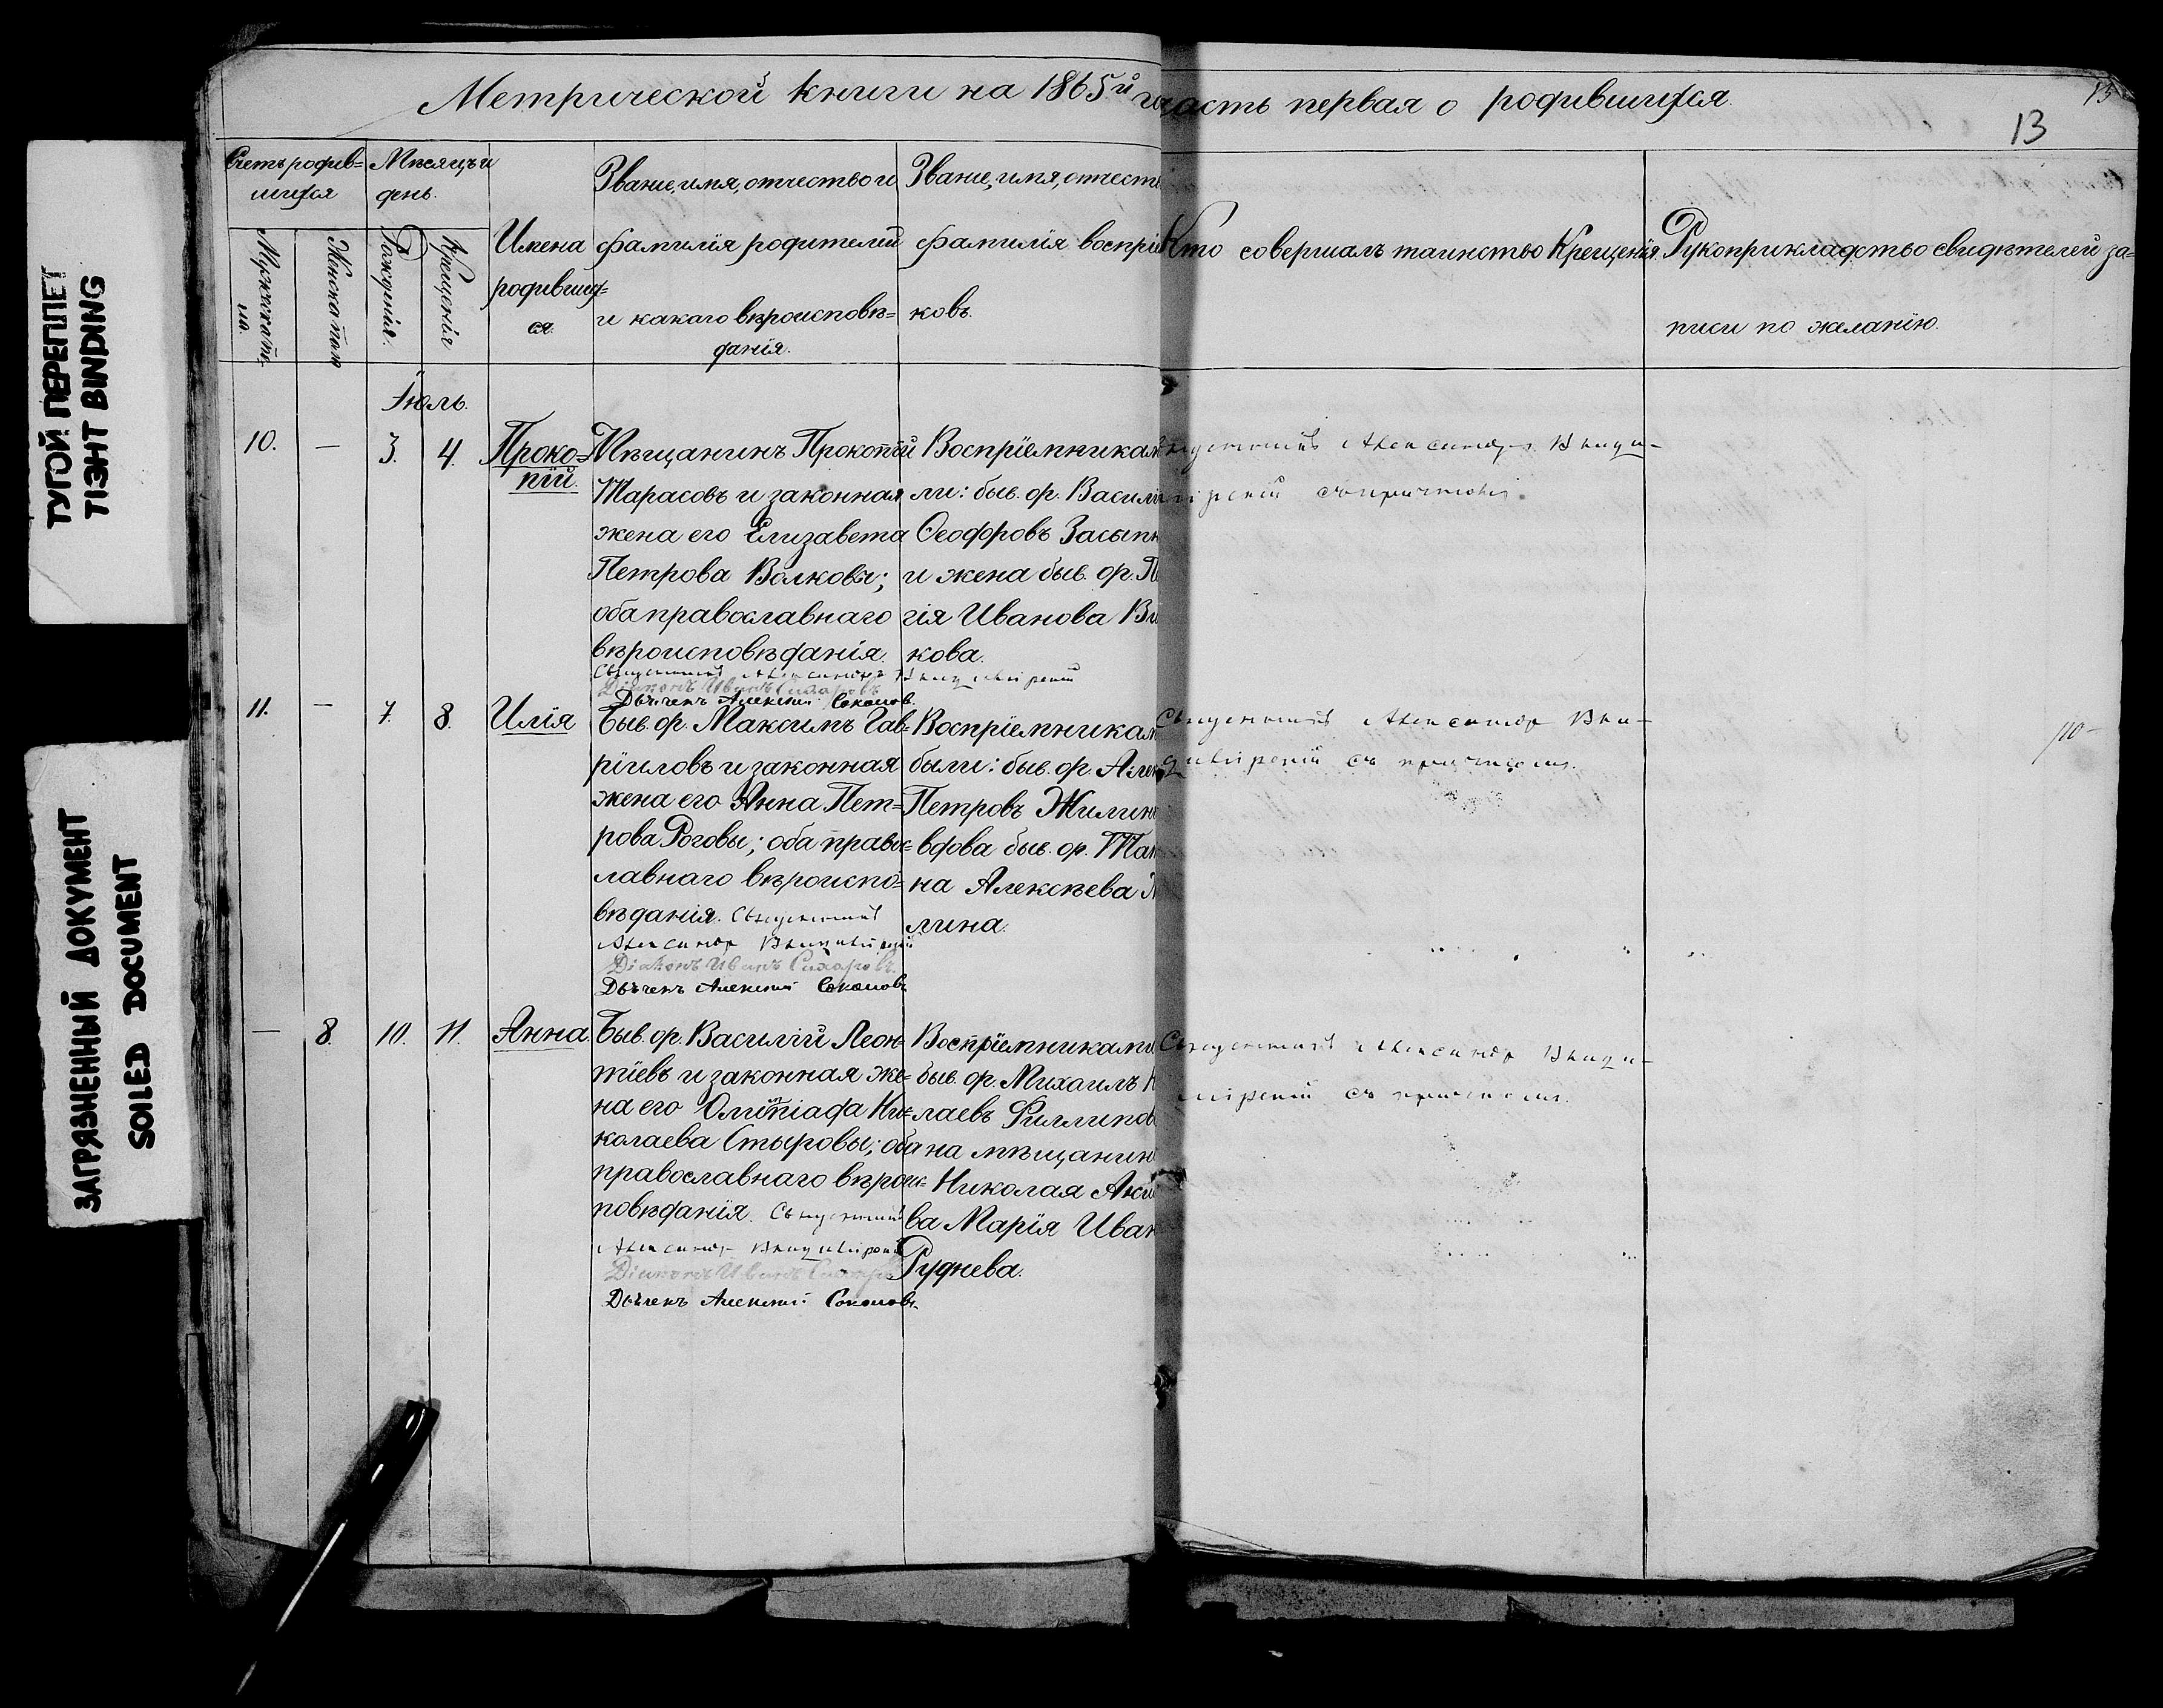 ТУГОЙ ПЕРЕПЛЕТ
TIЭHT BINDING
ЗАГРЯЗНЕННЫЙ ДОКУМЕНТ
SOILED DOCUMENT
Метрической книги на 1865й
часть первая о родившихся.
13
Счетъ родив=
шихся
Мѣсяцъ и
день.
Мужска по=
ла.
Женска пола
Рожденія.
Крещенія
Имена
родивших=
ся.
Званіе, имя, отчество и
фамилія родителей
и какаго вѣроисповѣ=
данія.
Званіе, имя, отчест
фамилія воспріе
ковъ.
Кто совершалъ таинство Крещенія.
Рукоприкладство свидѣтелей за=
писи по желанію.
Іюль.
10. — 3. 4. Проко=
пій.
Мѣщанинъ Прокопій
Тарасовъ и законная
жена его Елизавета
Петрова Волковы;
оба православнаго
вѣроисповѣданія.
Священникъ Александръ
Діаконъ Иванъ Сахаровъ
Дьячекъ Алексѣй Соколов.
Воспріемникам
ли: быв. ор. Васил
Ѳеодоровъ Засып
и жена быв. ор.
гія Иванова
кова.
Александръ
съ причтомъ.
11. — 7. 8. Илія
Быв. ор. Максимъ Гав=
ріиловъ и законная
жена его Анна Пет=
рова Роговы; оба правос=
лавнаго вѣроиспо=
вѣданія. Священникъ
Александръ
Діаконъ Иванъ Сахаровъ.
Дьячекъ Алексѣй Соколовъ
Воспріемникам
были: быв. ор. Але
Петровъ Жилин
вдова быв. ор.
на Алексѣева
лина.
Священникъ Александръ
съ причтомъ.
— 8. 10. 11. Анна.
Быв. ор. Василій Леон=
тіевъ и законная же=
на его Олимпіада Ни=
колаева Стыровы; оба
православнаго вѣроис=
повѣданія. Священникъ
Александръ
Діаконъ Иванъ
Дьячекъ Алексѣй Соколовъ
Воспріемниками
быв. ор. Михаилъ
лаевъ Филлипов
на мѣщанин
Николая
ва Марія Иван
Руднева.
Священникъ Александръ
съ причтомъ.